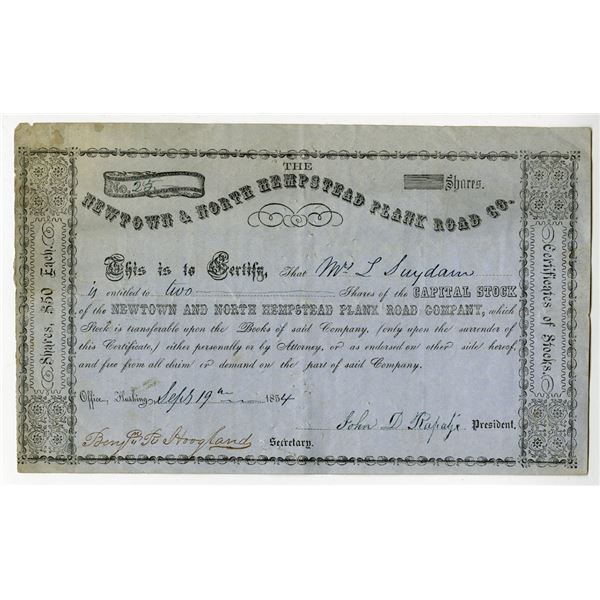 THE
No. 25
Shares.
NEWTOWN & NORTH HEMPSTEAD PLANK ROAD CO.
This is to Certify, That Mrs L Suydam
is entitled to two Shares of the CAPITAL STOCK
of the NEWTOWN AND NORTH HEMPSTEAD PLANK ROAD COMPANY, which
Stock is transferable upon the Books of said Company, (only upon the surrender of
this Certificate,) either personally or by Attorney, or as endorsed on other side hereof,
and free from all claim or demand on the part of said Company.
Office, Flushing, Sept 19th 1854
John D Rapalje President.
Benjn F. Hoogland Secretary.
Shares, $50 Each.
Certificates of Stocks.